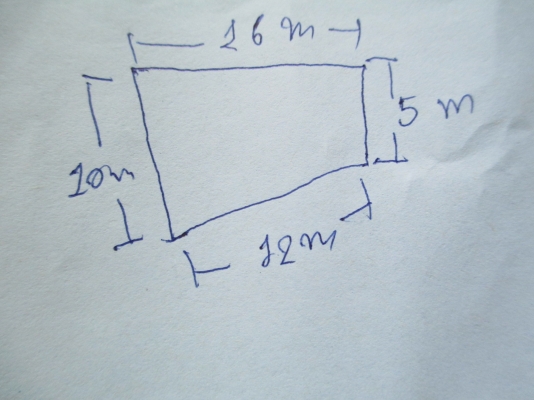 16 m
5 m
10m
12m